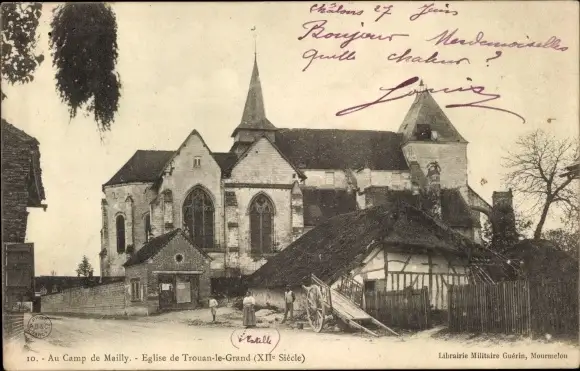 Châlons 27 Juin
Bonjour Mesdemoiselles
Quelle chaleur ?
Louis
10. - Au Camp de Mailly. - Eglise de Trouan-le-Grand (XIIe Siècle)
Librairie Militaire Guérin, Mourmelon